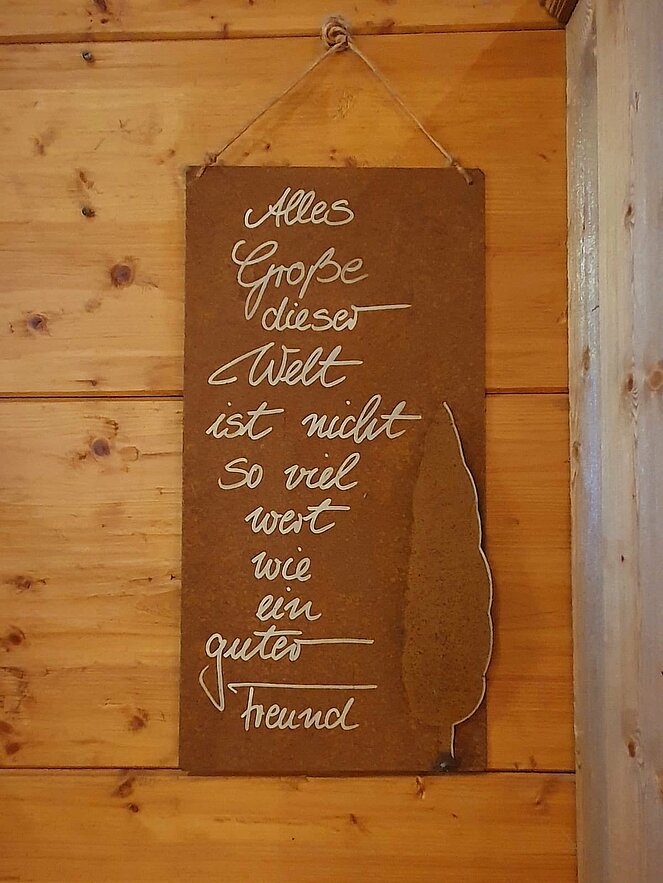 Alles
Große
dieser
Welt
ist nicht
so viel
wert
wie
ein
guter
Freund